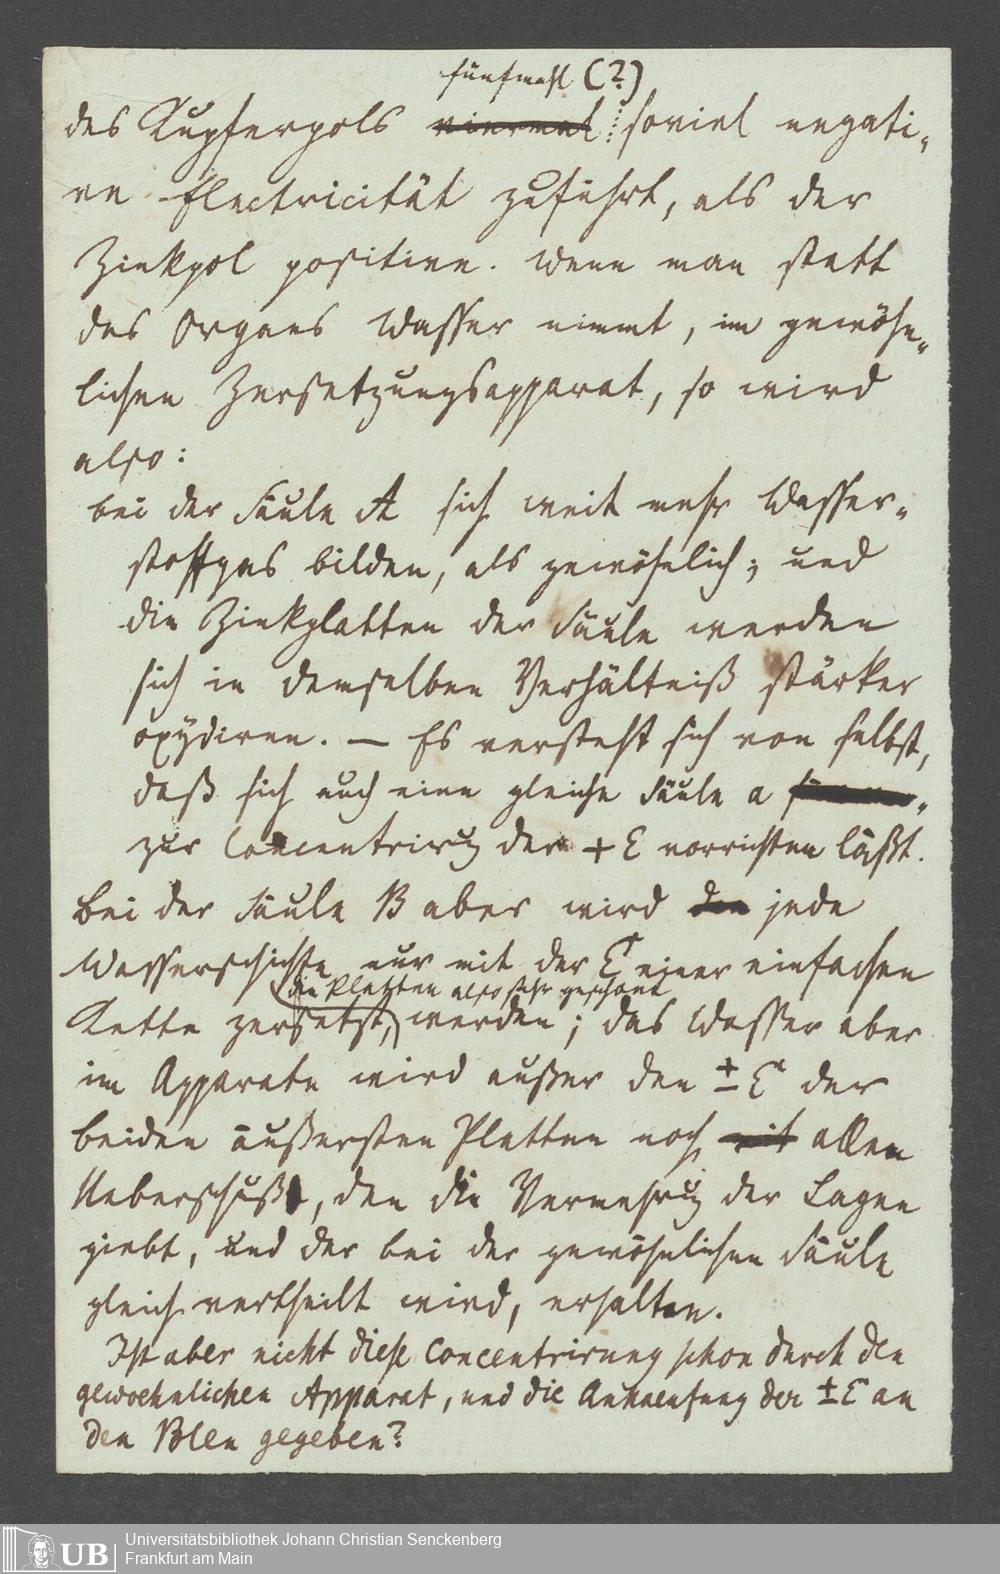 fünfmahl (?)
des Kupferpols viermal soviel negati-
ve Electricität zuführt, als der
Zinkpol positive. Wenn man statt
des Organs Wasser nimmt, im gewöhn-
lichen Zersetzungsapparat, so wird
also:
bei der Säule A sich weit mehr Wasser-
stoffgas bilden, als gewöhnlich; und
die Zinkplatten der Säule werden
sich in demselben Verhältniß stärker
oxydiren. — Es versteht sich von selbst,
daß sich auch eine gleiche Säule a
zur Concentrirung der + E vorrichten läßt.
Bei der Säule B aber wird den jede
Wasserschichte nur mit der E einer einfachen
die Platten also sehr geschont
Kette zersetzt, werden; das Wasser aber
im Apparate wird außer den ± E der
beiden äußersten Platten noch mit allen
Ueberschuß, den die Vermehrung der Lagen
giebt, und der bei der gewöhnlichen Säule
gleich vertheilt wird, erhalten.
Ist aber nicht diese Concentrirung schon durch den
gewoehnlichen Apparat, und die Anhaeufung der ± E an
den Polen gegeben?
Universitätsbibliothek Johann Christian Senckenberg
Frankfurt am Main
UB